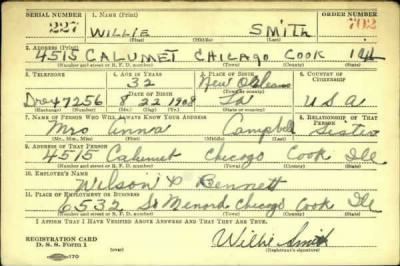 SERIAL NUMBER 1. NAME (Print) ORDER NUMBER
227 WILLIE SMITH 702
(First) (Middle) (Last)
2. ADDRESS (Print)
4515 CALUMET CHICAGO COOK Ill
(Number and street or R. F. D. number) (Town) (County) (State)
3. TELEPHONE 4. AGE IN YEARS 5. PLACE OF BIRTH 6. COUNTRY OF CITIZENSHIP
32 New Orleans
DATE OF BIRTH
Dre 47256 8 22 1908 La U S A
(Exchange) (Number) (Mo.) (Day) (Yr.) (State or country)
7. NAME OF PERSON WHO WILL ALWAYS KNOW YOUR ADDRESS 8. RELATIONSHIP OF THAT PERSON
Mrs Anna Campbell Sister
(Mr., Mrs., Miss) (First) (Middle) (Last)
9. ADDRESS OF THAT PERSON
4515 Calumet Chicago Cook Ill
(Number and street or R. F. D. number) (Town) (County) (State)
10. EMPLOYER'S NAME
Wilson & Bennett
11. PLACE OF EMPLOYMENT OR BUSINESS
6532 So Menard Chicago Cook Ill
(Number and street or R. F. D. number) (Town) (County) (State)
I AFFIRM THAT I HAVE VERIFIED ABOVE ANSWERS AND THAT THEY ARE TRUE.
REGISTRATION CARD
D. S. S. Form 1
(over)
Willie Smith
(Registrant's signature)